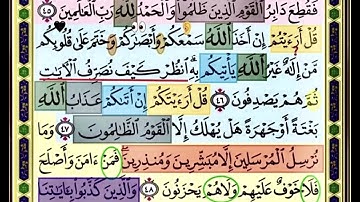 فَقُطِعَ دَابِرُ الْقَوْمِ الَّذِينَ ظَلَمُوا۟ وَالْحَمْدُ لِلَّهِ رَبِّ الْعَالَمِينَ ٤٥
قُلْ أَرَءَيْتُمْ إِنْ أَخَذَ اللَّهُ سَمْعَكُمْ وَأَبْصَارَكُمْ وَخَتَمَ عَلَىٰ قُلُوبِكُم
مَّنْ إِلَٰهٌ غَيْرُ اللَّهِ يَأْتِيكُم بِهِ انظُرْ كَيْفَ نُصَرِّفُ الْآيَاتِ
ثُمَّ هُمْ يَصْدِفُونَ ٤٦ قُلْ أَرَءَيْتَكُمْ إِنْ أَتَاكُمْ عَذَابُ اللَّهِ
بَغْتَةً أَوْ جَهْرَةً هَلْ يُهْلَكُ إِلَّا الْقَوْمُ الظَّالِمُونَ ٤٧ وَمَا
نُرْسِلُ الْمُرْسَلِينَ إِلَّا مُبَشِّرِينَ وَمُنذِرِينَ فَمَنْ ءَامَنَ وَأَصْلَحَ
فَلَا خَوْفٌ عَلَيْهِمْ وَلَا هُمْ يَحْزَنُونَ ٤٨ وَالَّذِينَ كَذَّبُوا۟ بِـَٔايَاتِنَا